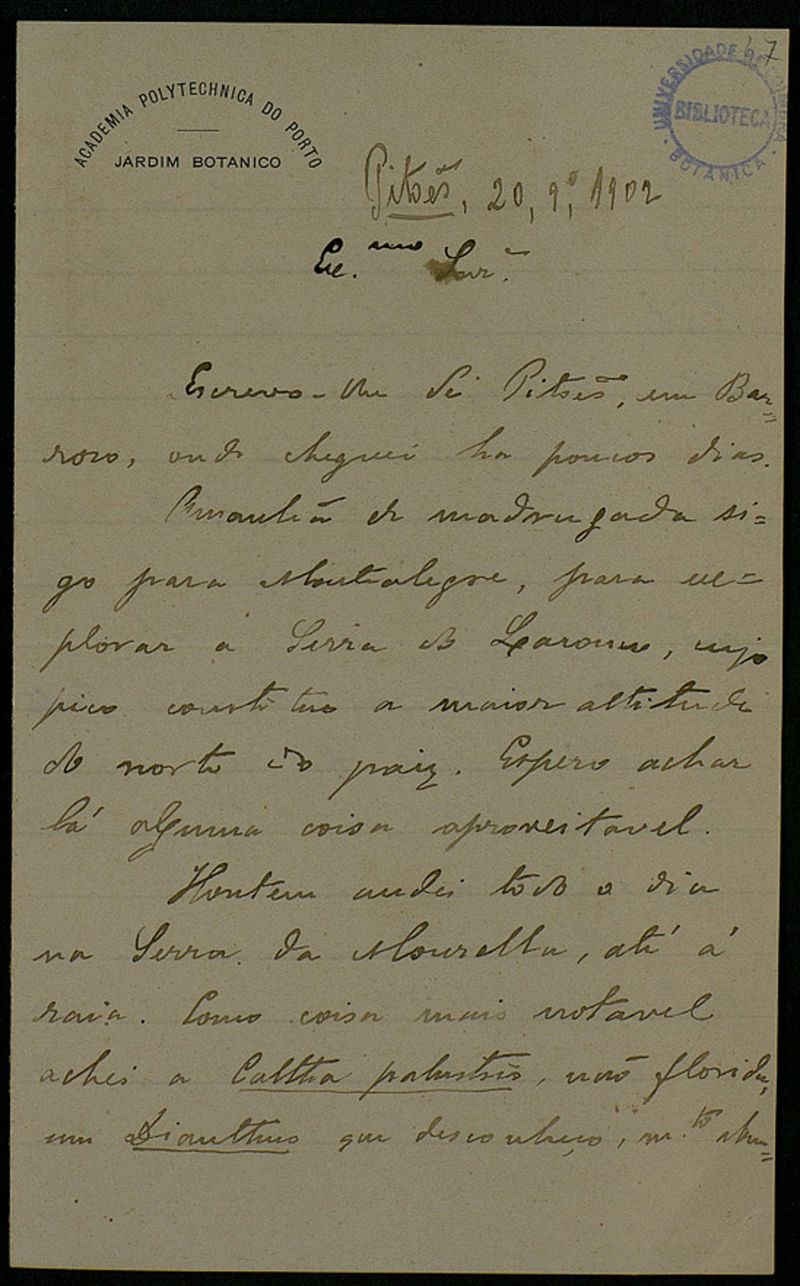 ACADEMIA POLYTECHNICA DO PORTO
JARDIM BOTANICO
UNIVERSIDADE DE COIMBRA
BIBLIOTECA
BOTANICA
67
Pitões, 20, 9º, 1902
Ex.mo Snr.
Escrevo-lhe de Pitões, em Bar=
roso, onde cheguei ha poucos dias.
Amanhã de madrugada si=
go para Montalegre, para ex=
plorar a Serra do Larouco, cujo
pico constitue a maior altitude
do norte do paiz. Espero achar
lá alguma coisa aproveitavel.
Hontem andei todo o dia
na Serra da Mourella, até á
raia. Como coisa mais notavel
achei a Caltha palustris, não florida,
um Dianthus que desconheço, m.to abun=